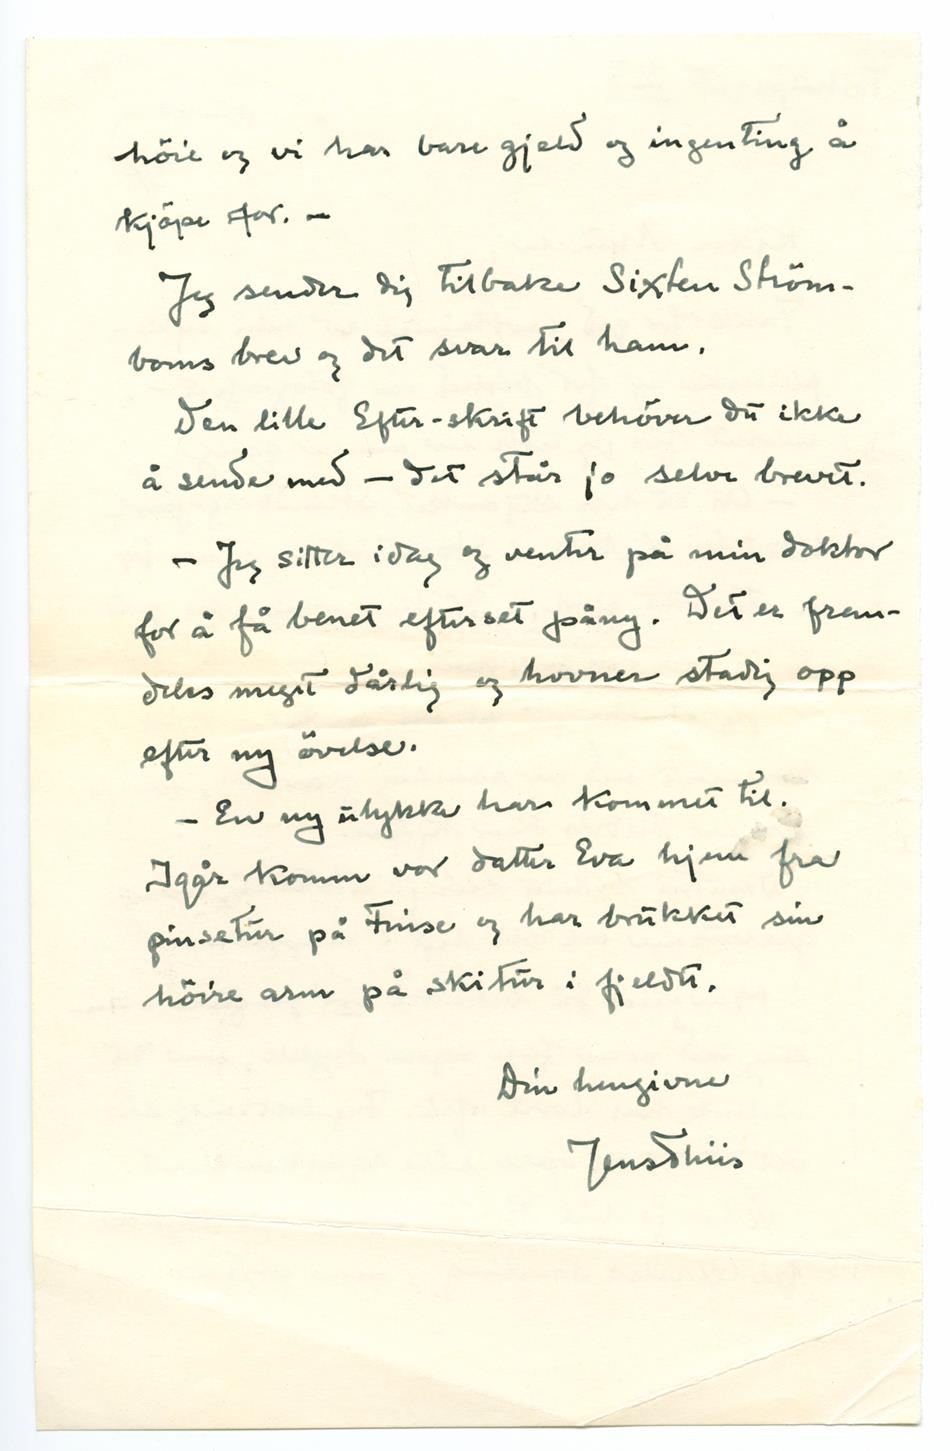 höie og vi har bare gjeld og ingenting å
kjöpe for. –
Jeg sender dig tilbake Sixten Ström-
boms brev og det svar til ham.
Den lille Efter-skrift behöver du ikke
å sende med – det står jo selve brevet.
– Jeg sitter idag og venter på min doktor
for å få benet efterset påny. Det er frem-
deles meget dårlig og hovner stadig opp
efter ny övelse.
– En ny ulykke har kommet til.
Igår komm vor datter Eva hjem fra
pinsetur på Finse og har brukket sin
höire arm på skitur i fjeldet.
Din hengivne
Jens Thiis